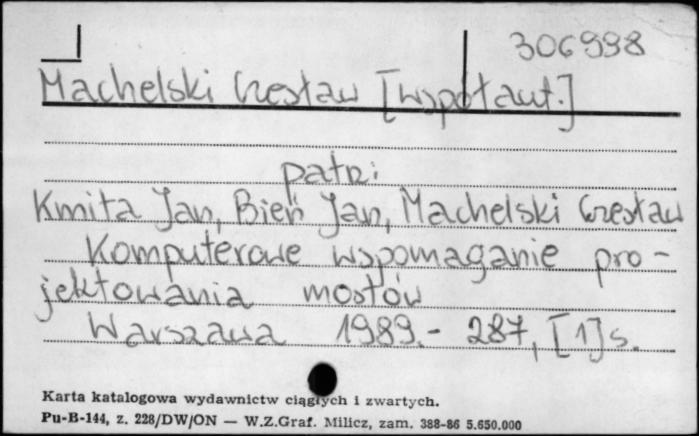 306998
Machelski Czesław [współaut.]
patrz:
Kmita Jan, Bień Jan, Machelski Czesław
Komputerowe wspomaganie pro-
jektowania mostów
Warszawa 1989.- 287, [1] s.
Karta katalogowa wydawnictw ciągłych i zwartych.
Pu-B-144, z. 228/DW/ON — W.Z.Graf. Milicz, zam. 388-86 5.650.000